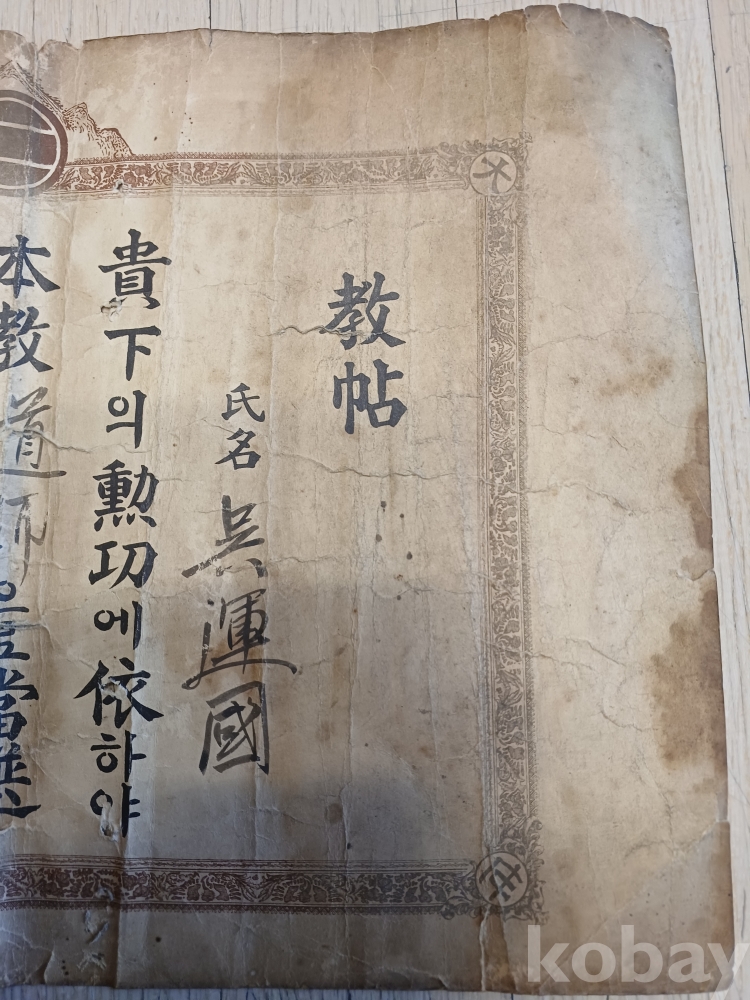 教帖
氏名 吳運國
貴下의勲功에依하야
本教道師
kobay